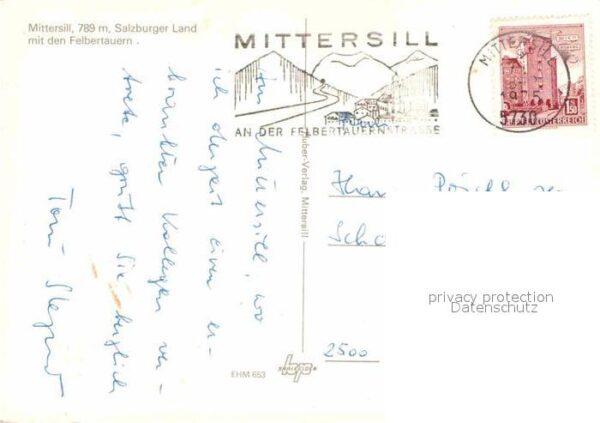 Mittersill, 789 m, Salzburger Land
mit den Felbertauern.
MITTERSILL
AN DER FELBERTAUERNSTRASSE
MITTERSILL
1975
5730
REPUBLIK ÖSTERREICH
Aus Mittersill, wo
ich derzeit einen er-
krankten Kollegen ver-
trete, grüßt Sie herzlich
Toni
uber-Verlag, Mittersill
2500
privacy protection
Datenschutz
EHM 653